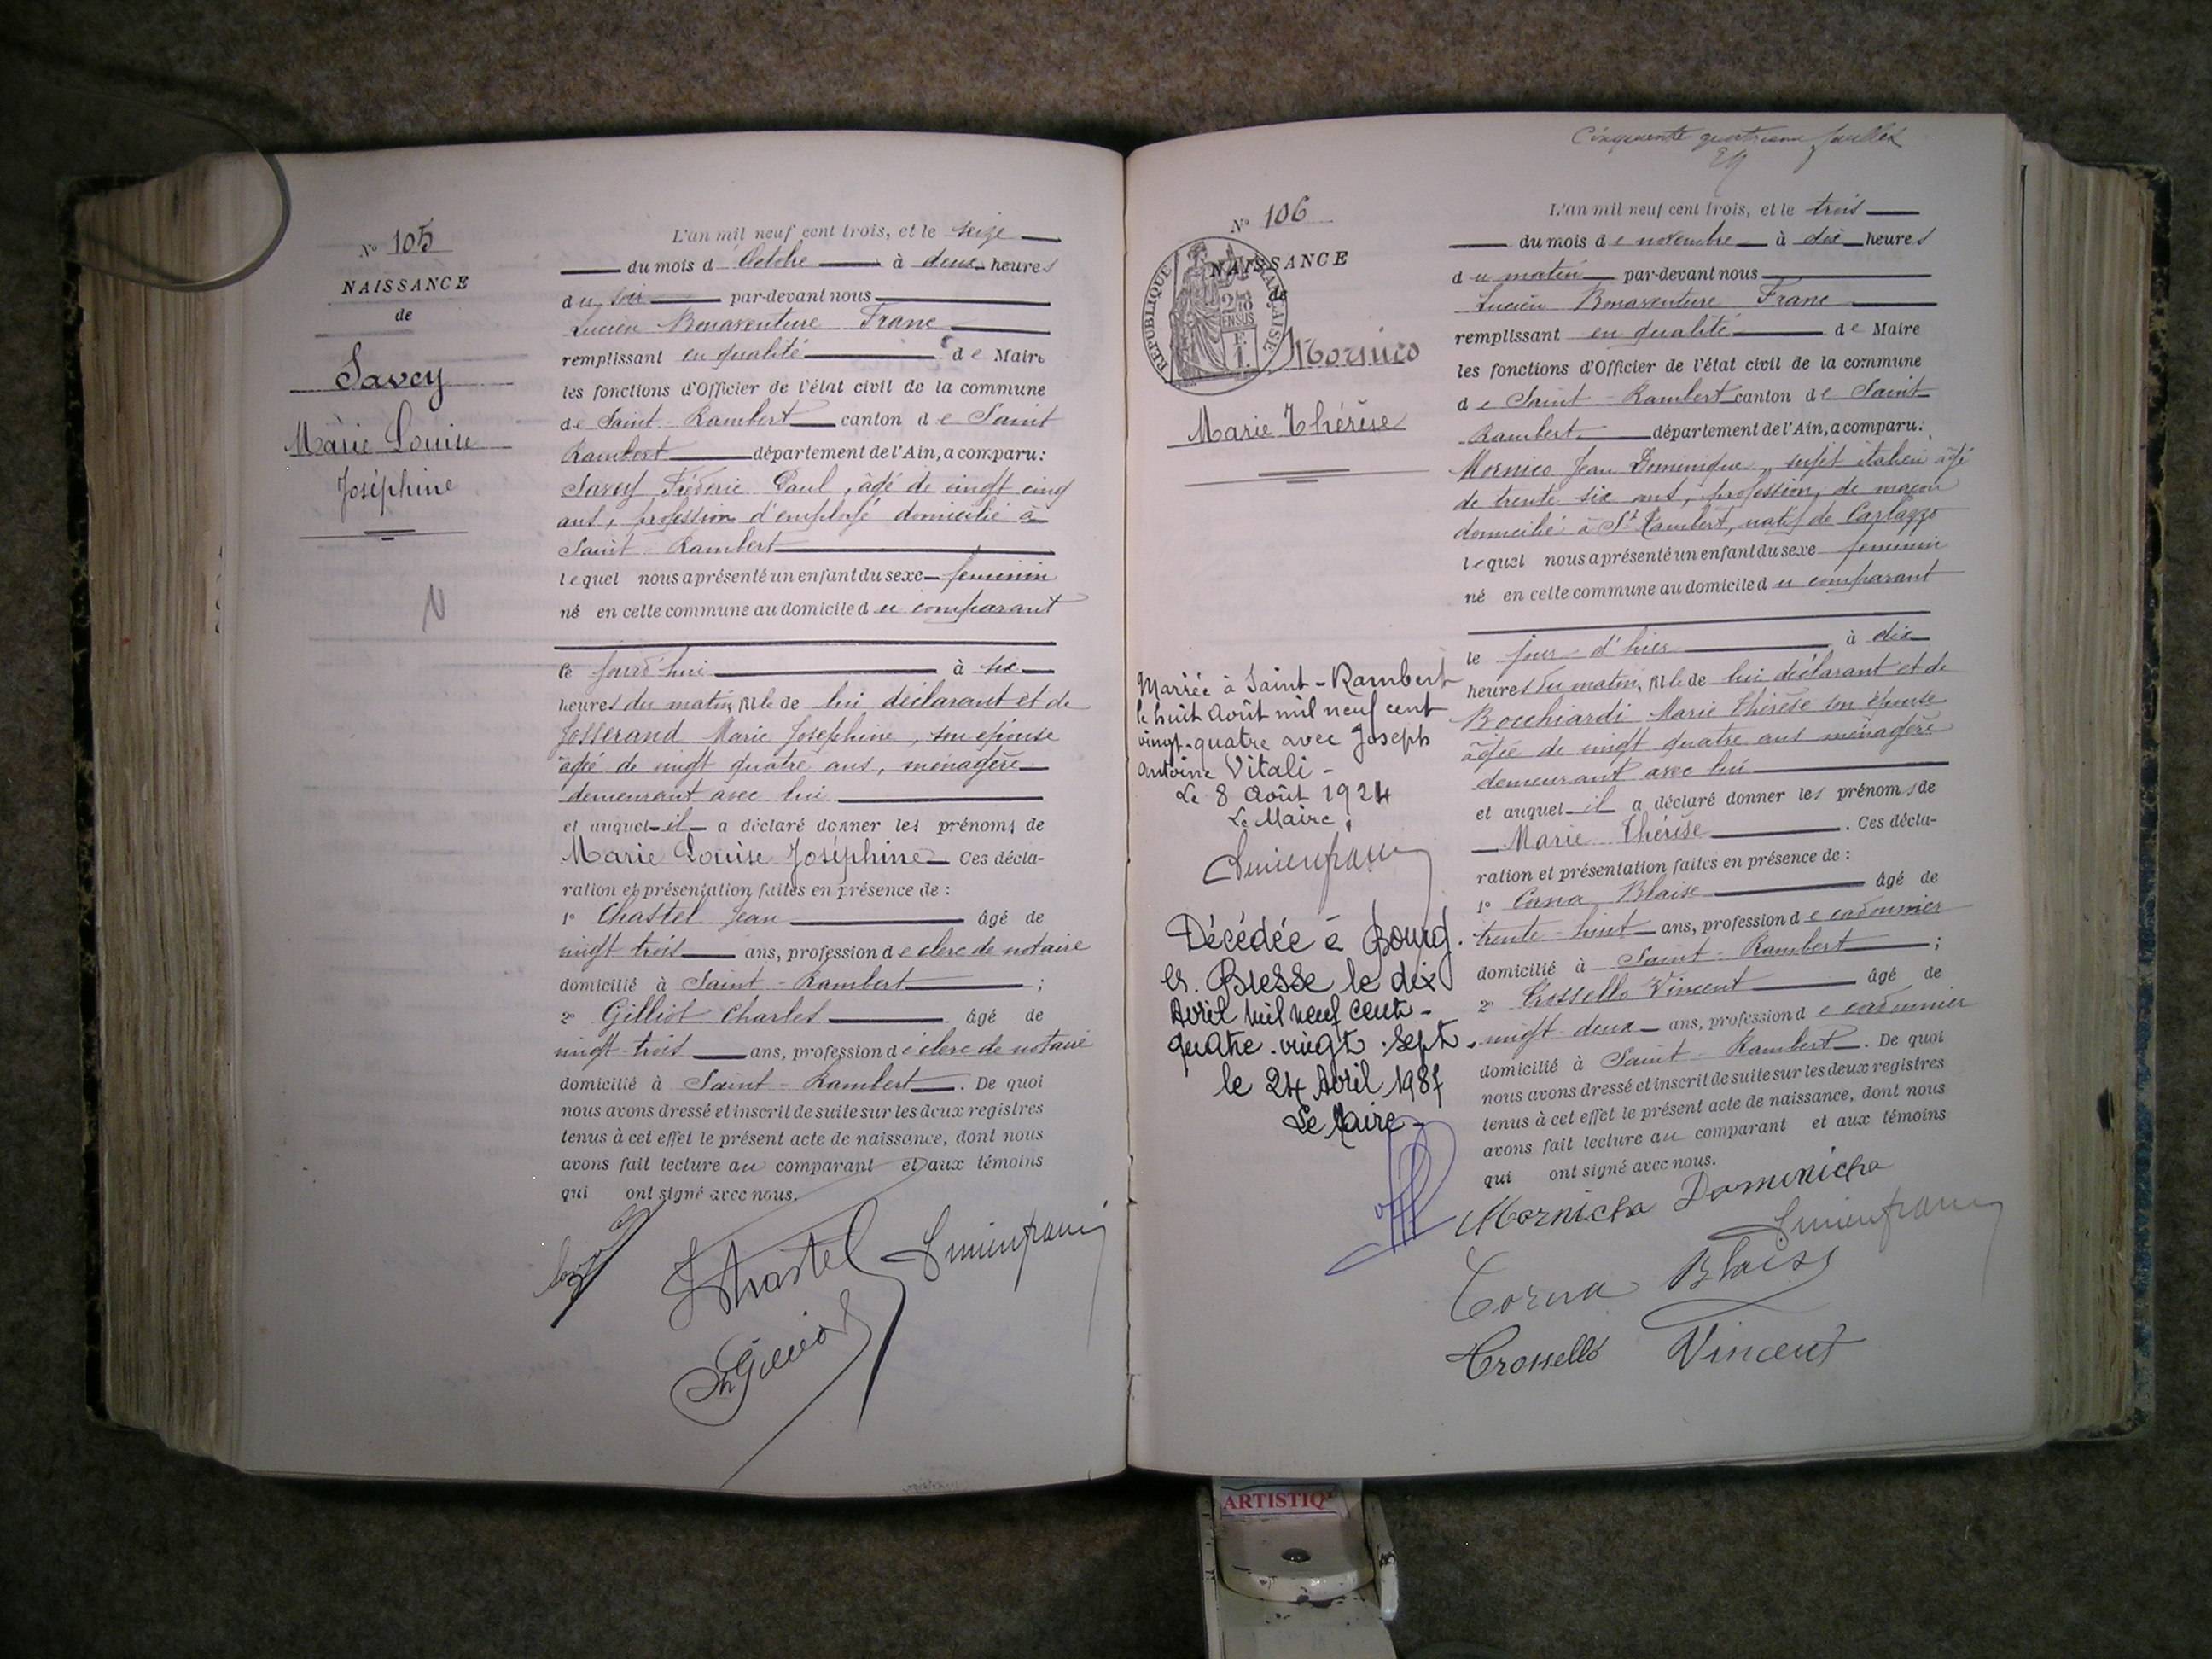 N° 105
NAISSANCE
de
Savey
Marie Louise
Joséphine
L'an mil neuf cent trois, et le seize
du mois d'Octobre à deux heures
du soir par-devant nous
Lucien Bonaventure Franc
remplissant en qualité de Maire
les fonctions d'Officier de l'état civil de la commune
de Saint-Rambert canton de Saint
Rambert département de l'Ain, a comparu:
Savey Fréderic Paul, âgé de vingt cinq
ans, profession d'employé domicilié à
Saint-Rambert
lequel nous a présenté un enfant du sexe feminin
né en cette commune au domicile du comparant
ce jourd'hui à six
heures du matin, fille de lui déclarant et de
Josserand Marie Joséphine, son épouse
âgée de vingt quatre ans, ménagère
demeurant avec lui
et auquel il a déclaré donner les prénoms de
Marie Louise Joséphine Ces décla-
ration et présentation faites en présence de :
1° Chastel Jean âgé de
vingt trois ans, profession de clerc de notaire
domicilié à Saint-Rambert ;
2° Gilliot Charles âgé de
vingt-trois ans, profession de clerc de notaire
domicilié à Saint-Rambert. De quoi
nous avons dressé et inscrit de suite sur les deux registres
tenus à cet effet le présent acte de naissance, dont nous
avons fait lecture au comparant et aux témoins
qui ont signé avec nous.
Cinquante quatrieme feuillet
N° 106
NAISSANCE
de
RÉPUBLIQUE FRANÇAISE
Mornico
Marie Thérèse
Mariée à Saint-Rambert
le huit Août mil neuf cent
vingt-quatre avec Joseph
Antoine Vitali -
Le 8 Août 1924
Le Maire,
Décédée à Bourg.
en. Bresse le dix
Avril mil neuf cent-
quatre.vingt.sept.
le 24 Avril 1987
Le Maire-
L'an mil neuf cent trois, et le trois
du mois de novembre à dix heures
du matin par-devant nous
Lucien Bonaventure Franc
remplissant en qualité de Maire
les fonctions d'Officier de l'état civil de la commune
de Saint-Rambert canton de Saint
Rambert département de l'Ain, a comparu:
Mornico Jean Dominique, sujet italien âgé
de trente six ans, profession, de maçon
domicilié à St Rambert, natif de Carlazzo
lequel nous a présenté un enfant du sexe feminin
né en cette commune au domicile du comparant
le jour d'hier à dix
heures du matin, fille de lui déclarant et de
Bocchiardi Marie Thérèse son épouse
âgée de vingt quatre ans ménagère
demeurant avec lui
et auquel il a déclaré donner les prénoms de
Marie Thérèse. Ces décla-
ration et présentation faites en présence de :
1° Corna Blaise âgé de
trente-huit ans, profession de cordonnier
domicilié à Saint-Rambert ;
2° Crossello Vincent âgé de
vingt-deux ans, profession de cordonnier
domicilié à Saint-Rambert. De quoi
nous avons dressé et inscrit de suite sur les deux registres
tenus à cet effet le présent acte de naissance, dont nous
avons fait lecture au comparant et aux témoins
qui ont signé avec nous.
Mornicha Domenicha
Corna Blaise
Crossello Vincent
ARTISTIQ